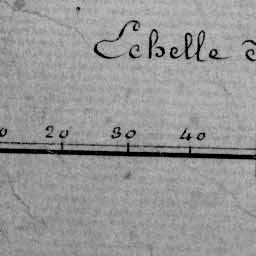 Echelle d
0 20 30 40